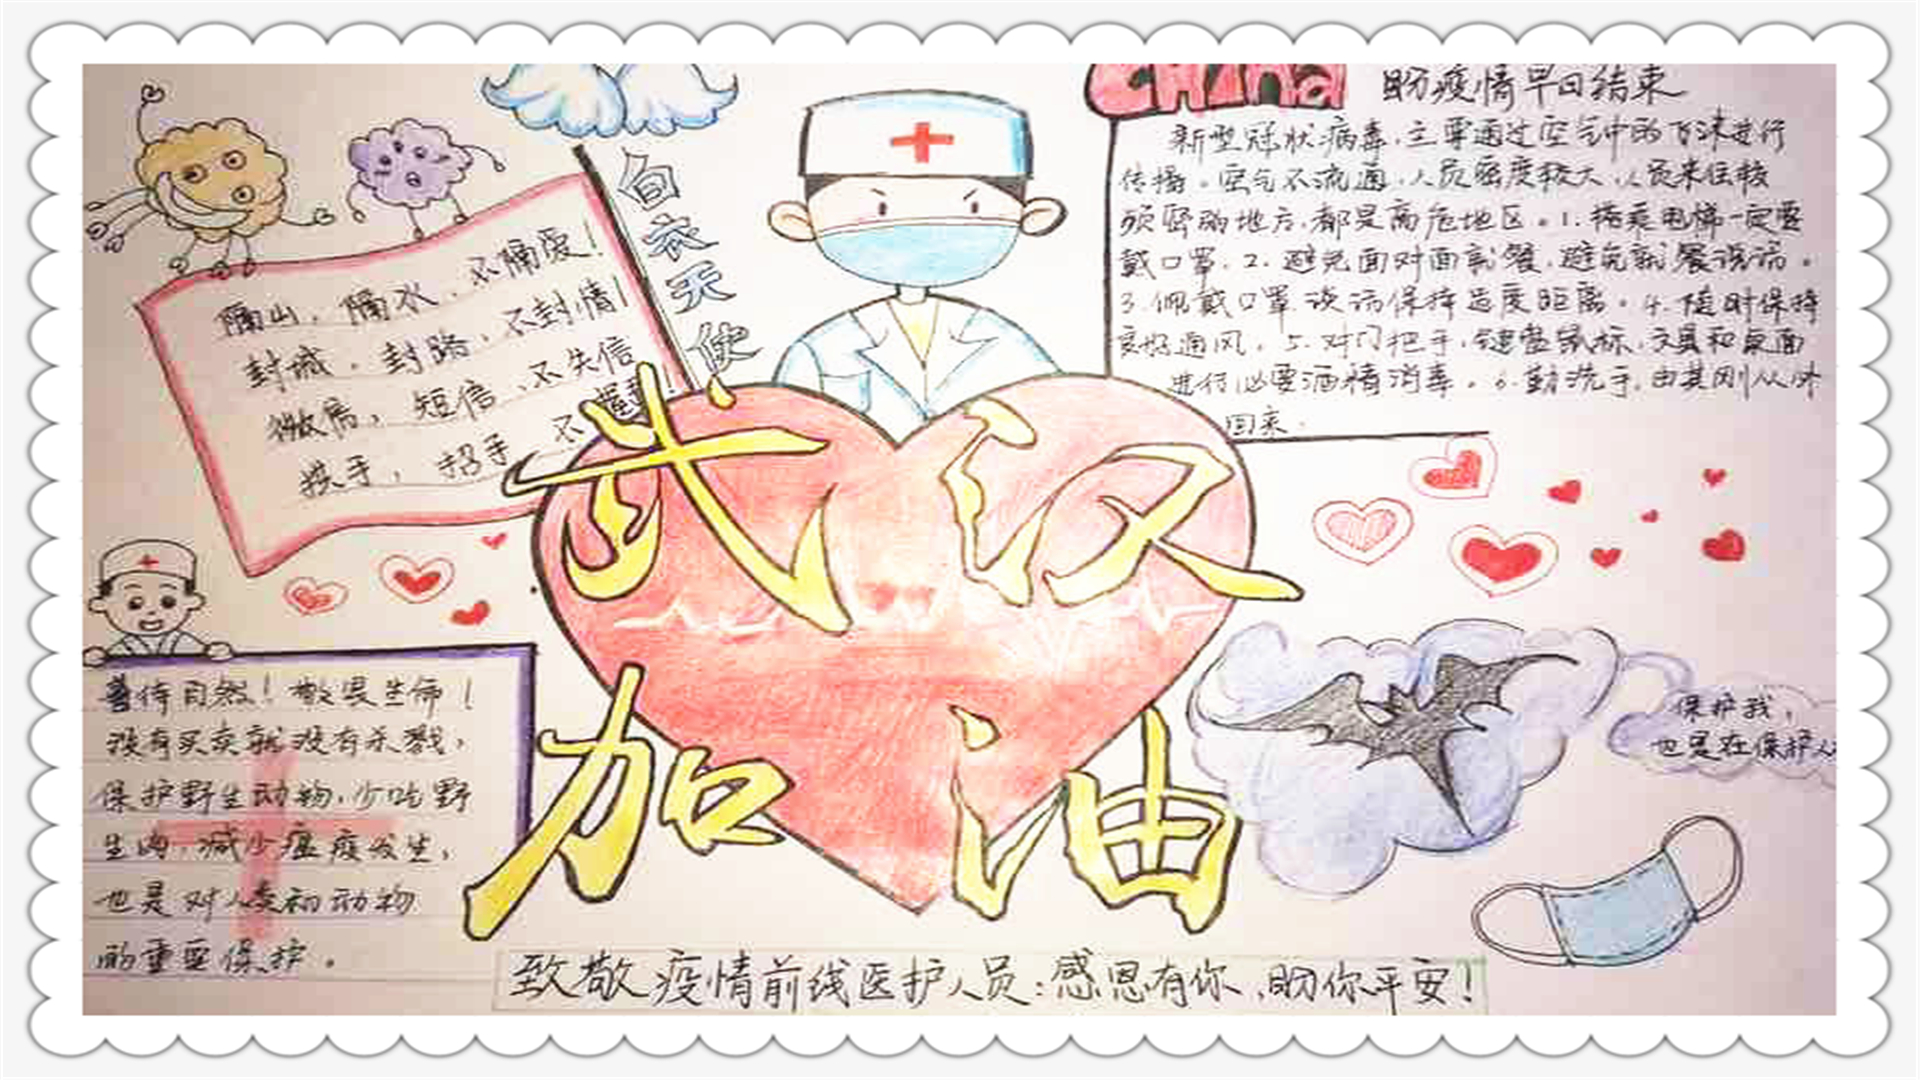 China
盼疫情早日结束
新型冠状病毒，主要通过空气中的飞沫进行
传播。空气不流通，人员密度较大，人员来往较
频繁的地方，都是高危地区。1.搭乘电梯一定要
戴口罩，2.避免面对面就餐，避免就餐说话。
3.佩戴口罩谈话保持适度距离。4.随时保持
良好通风。5.对门把手，键盘鼠标，文具和桌面
进行必要酒精消毒。6.勤洗手，尤其刚从外
回来.
白衣天使
隔山，隔水，不隔爱！
封城，封路，不封情！
微信，短信，不失信
挨手，招手，不握手！
武汉
加油
善待自然！敬畏生命！
没有买卖就没有杀戮，
保护野生动物，少吃野
生肉，减少瘟疫发生，
也是对人类和动物
的重要保护。
保护我，
也是在保护人
致敬疫情前线医护人员：感恩有你，盼你平安！